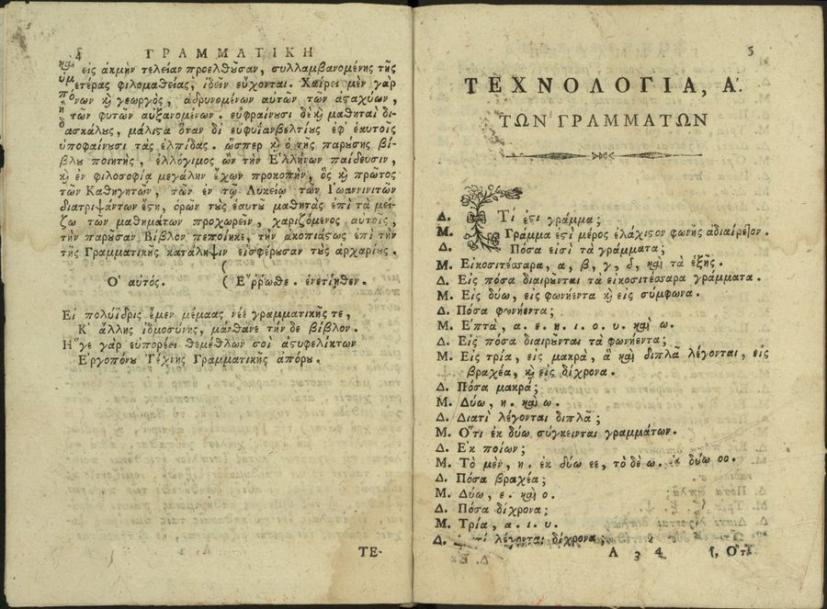 4 ΓΡΑΜΜΑΤΙΚΗ
εἰς ἀκμὴν τελείαν προελθοῦσαν, συλλαμβανομένης τῆς
ὑμετέρας φιλομαθείας, ἰδεῖν εὔχονται. Χαίρει μὲν γὰρ
καὶ γεωργὸς, ἁδρυνομένων αὐτῶν τῶν ἀσταχύων,
τῶν φυτῶν αὐξανομένων. εὐφραίνουσι δὲ καὶ μαθηταὶ δι-
δασκάλους, μάλιστα ὅταν δι' εὐφυΐαν βελτίους ἐφ' ἑαυτοῖς
ὑποφαίνουσι τὰς ἐλπίδας. ὥσπερ καὶ ὁ τῆς παρούσης βί-
βλου ποιητὴς, ἐλλόγιμος ὢν τὴν Ἑλλήνων παίδευσιν,
καὶ ἐν φιλοσοφίᾳ μεγάλην ἔχων προκοπὴν, ὃς καὶ πρῶτος
τῶν Καθηγητῶν, τῶν ἐν τῷ Λυκείῳ τῶν Ἰωαννινιτῶν
διατριψάντων ἔστη, ὁρῶν τοὺς ἑαυτοῦ μαθητὰς ἐπὶ τὰ μεί-
ζω τῶν μαθημάτων προχωρεῖν, χαριζόμενος αὐτοῖς,
τὴν παροῦσαν Βίβλον πεποίηκε, τὴν ἀκοπιάστως ἐπὶ τὴν
τῆς Γραμματικῆς κατάληψιν εἰσφέρουσαν τοὺς ἀρχαρίους.
Ὁ αὐτός. ( Ἔῤῥωσθε. ἐνετίηθεν.
Εἰ πολύϊδρις ἔμεν μέμαας νέε γραμματικῆς τε,
Κ' ἄλλης ἰδμοσύνης, μάνθανε τήνδε βίβλον.
Ἦ γε γὰρ εὐπορέει θεμέθλων σοὶ ἀστυφελίκτων
Ἐργοπόνου Τέχνης Γραμματικῆς ἀπόρου.
ΤΕ-
5
ΤΕΧΝΟΛΟΓΙΑ, Α.
ΤΩΝ ΓΡΑΜΜΑΤΩΝ
Δ. Τί ἐστι γράμμα;
Μ. Γράμμα ἐστὶ μέρος ἐλάχιστον φωνῆς ἀδιαίρετον.
Δ. Πόσα εἰσὶ τὰ γράμματα;
Μ. Εἰκοσιτέσσαρα, α, β, γ, δ, καὶ τὰ ἑξῆς.
Δ. Εἰς πόσα διαιροῦνται τὰ εἰκοσιτέσσαρα γράμματα.
Μ. Εἰς δύω, εἰς φωνήεντα καὶ εἰς σύμφωνα.
Δ. Πόσα φωνήεντα;
Μ. Ἑπτὰ, α. ε. η. ι. ο. υ. καὶ ω.
Δ. Εἰς πόσα διαιροῦνται τὰ φωνήεντα;
Μ. Εἰς τρία, εἰς μακρὰ, ἃ καὶ διπλᾶ λέγονται, εἰς
βραχέα, καὶ εἰς δίχρονα.
Δ. Πόσα μακρά;
Μ. Δύω, η. καὶ ω.
Δ. Διατί λέγονται διπλᾶ;
Μ. Ὅτι ἐκ δύω σύγκεινται γραμμάτων.
Δ. Ἐκ ποίων;
Μ. Τὸ μὲν, η. ἐκ δύω εε, τὸ δὲ ω. ἐκ δύω οο.
Δ. Πόσα βραχέα;
Μ. Δύω, ε. καὶ ο.
Δ. Πόσα δίχρονα;
Μ. Τρία, α. ι. υ.
Δ. τί λέγονται δίχρονα;
Α 3 4 Ὅτι